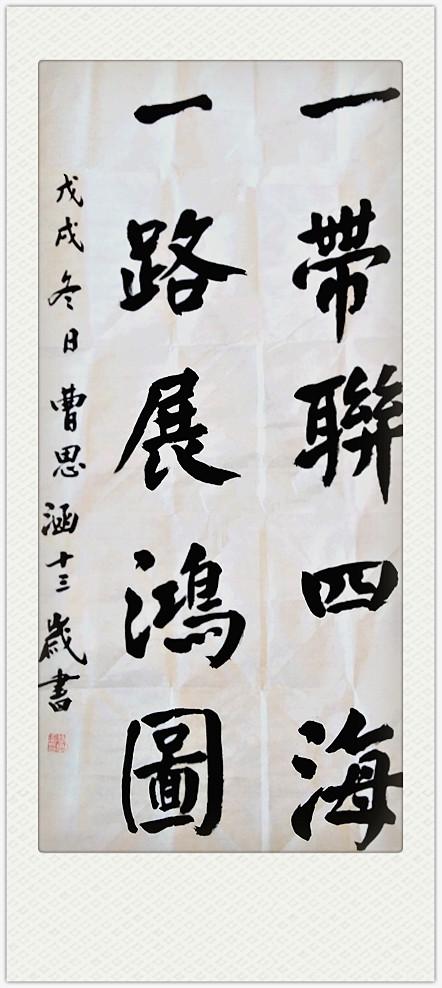 一帶聯四海
一路展鴻圖
戊戌冬日曹思涵十三歲書